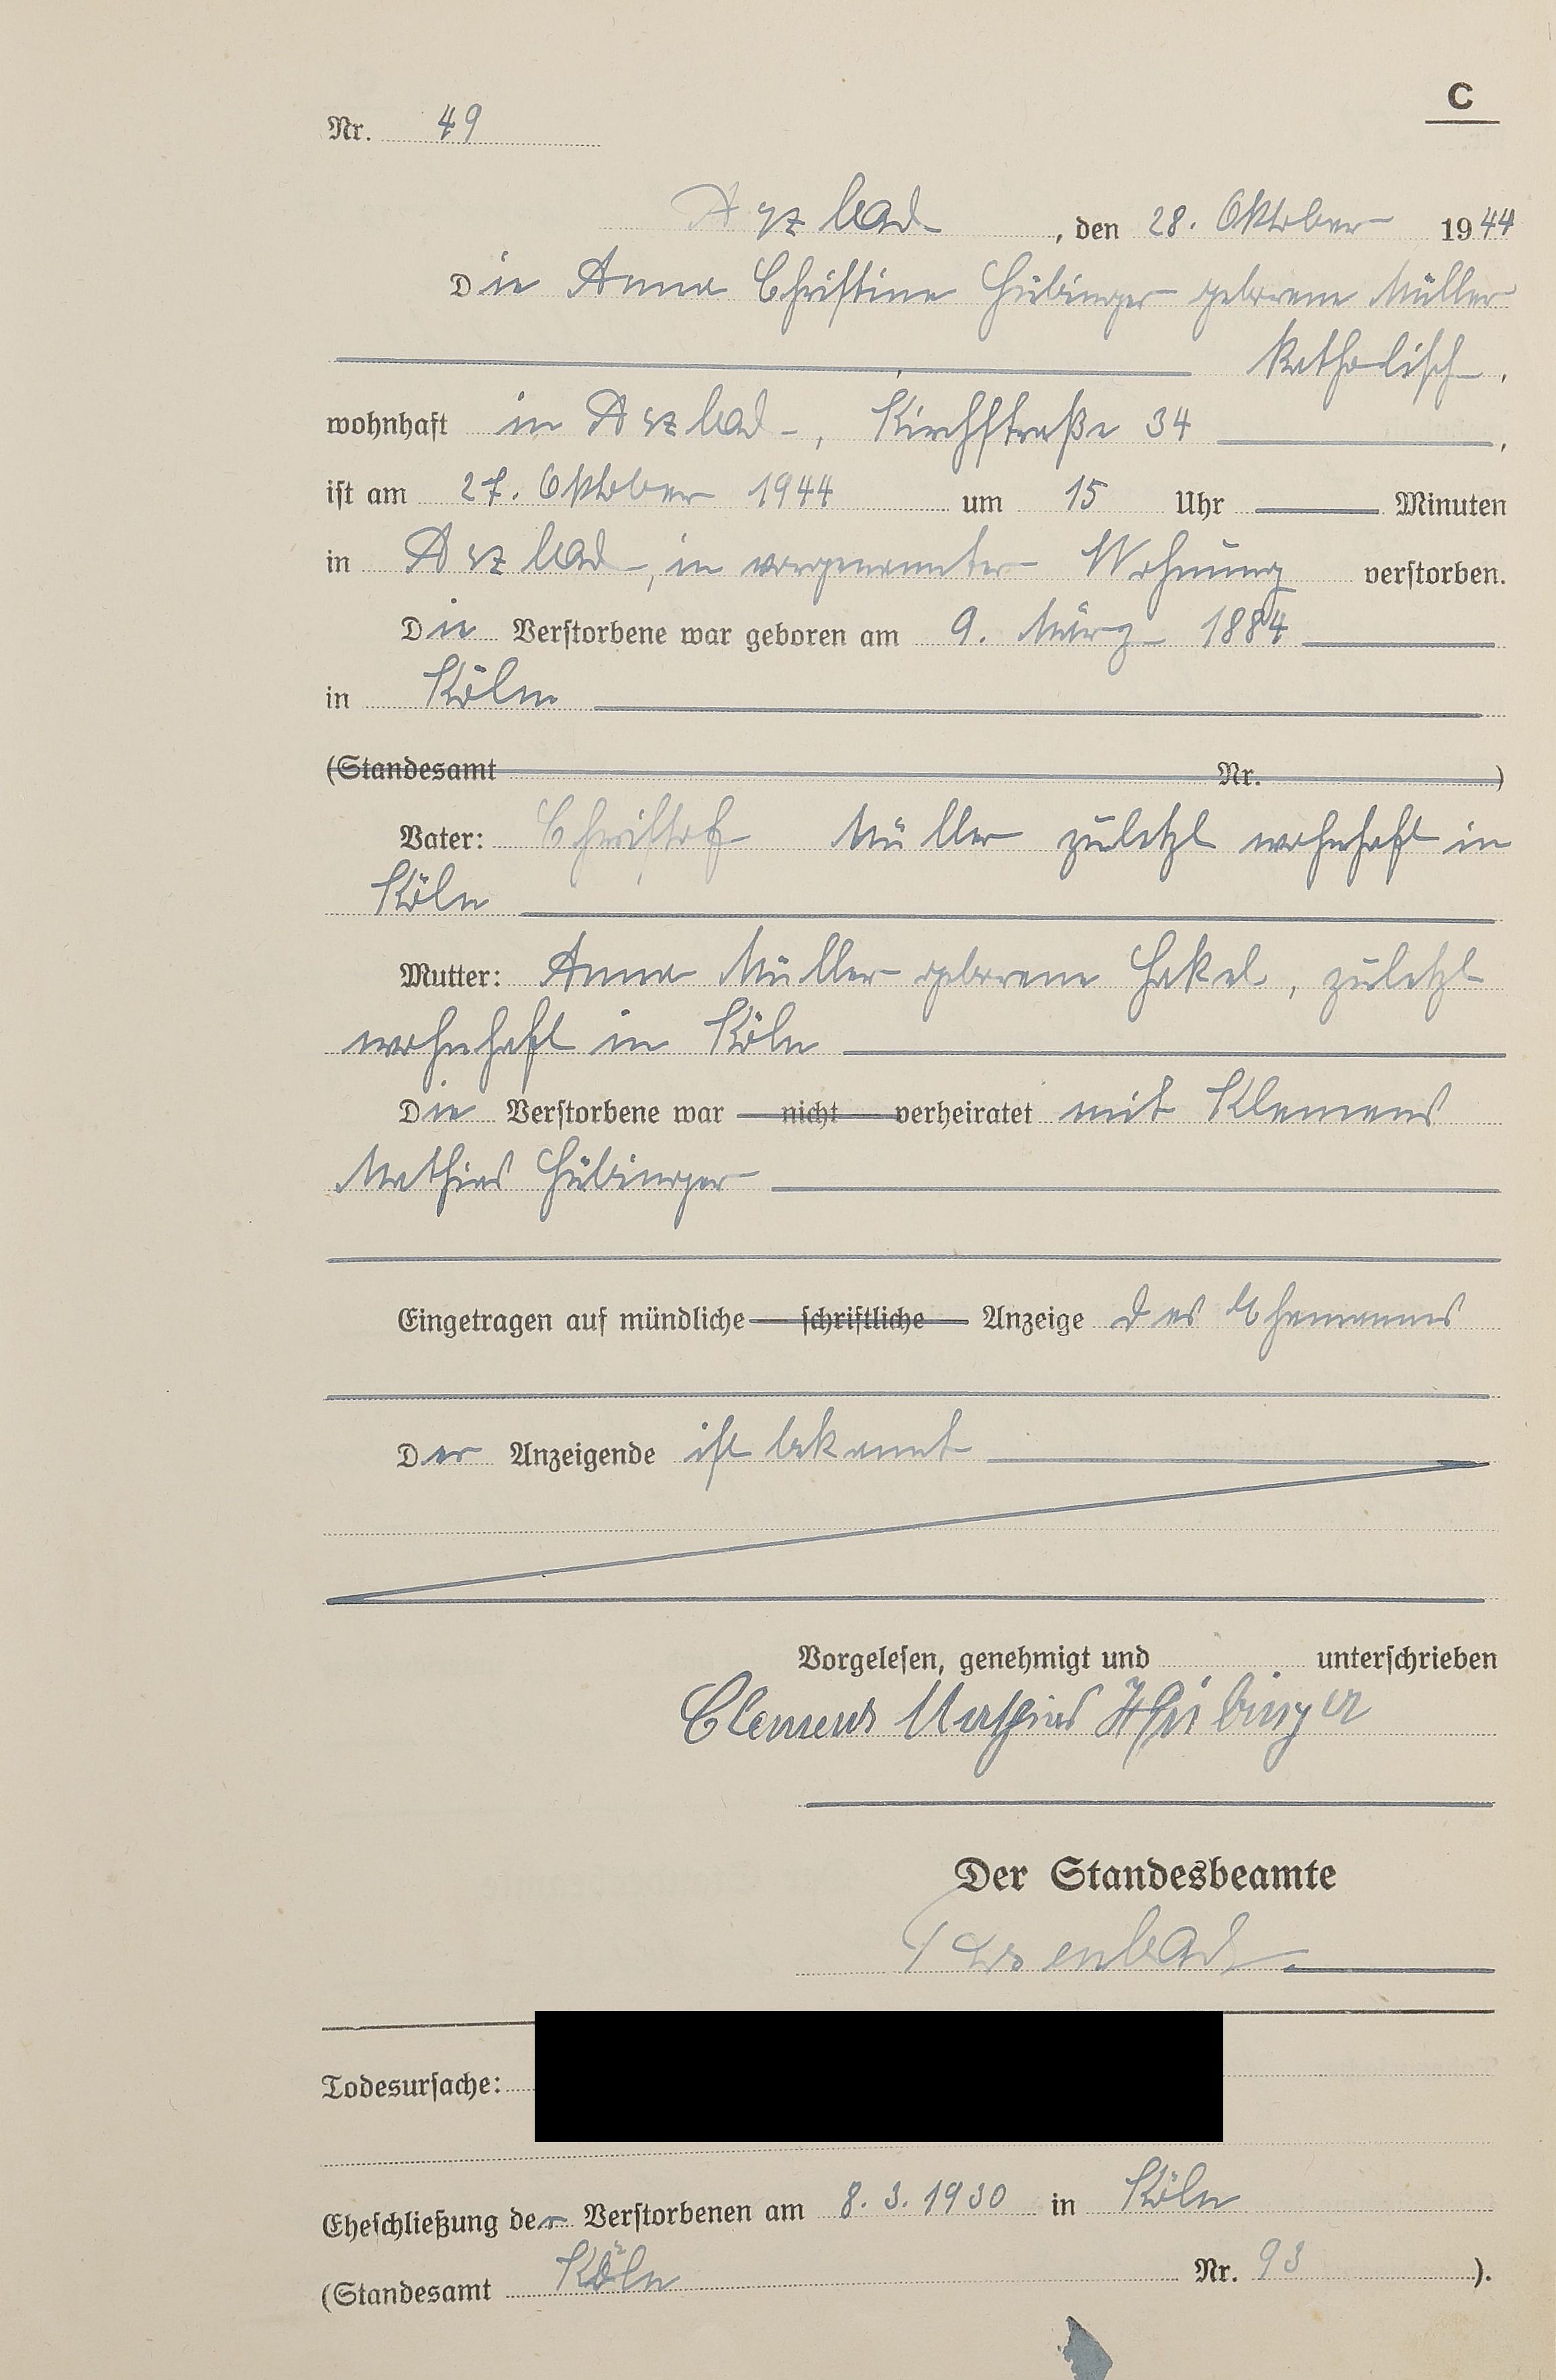 C
Nr. 49
Arzbach, den 28. Oktober 1944
Die Anna Christine Hübinger geborene Müller
katholisch,
wohnhaft in Arzbach, Kirchstraße 34,
ist am 27. Oktober 1944 um 15 Uhr Minuten
in Arzbach, in vorgenannter Wohnung verstorben.
Die Verstorbene war geboren am 9. März 1884
in Köln
(Standesamt Nr. )
Vater: Christof Müller zuletzt wohnhaft in
Köln
Mutter: Anna Müller geborene Hakel, zuletzt
wohnhaft in Köln
Die Verstorbene war nicht verheiratet mit Klemens
Mathias Hübinger
Eingetragen auf mündliche schriftliche Anzeige des Ehemannes
Der Anzeigende ist bekannt
Vorgelesen, genehmigt und unterschrieben
Clemens Mathias Hübinger
Der Standesbeamte
Todesursache:
Eheschließung der Verstorbenen am 8. 3. 1930 in Köln
(Standesamt Köln Nr. 93 ).